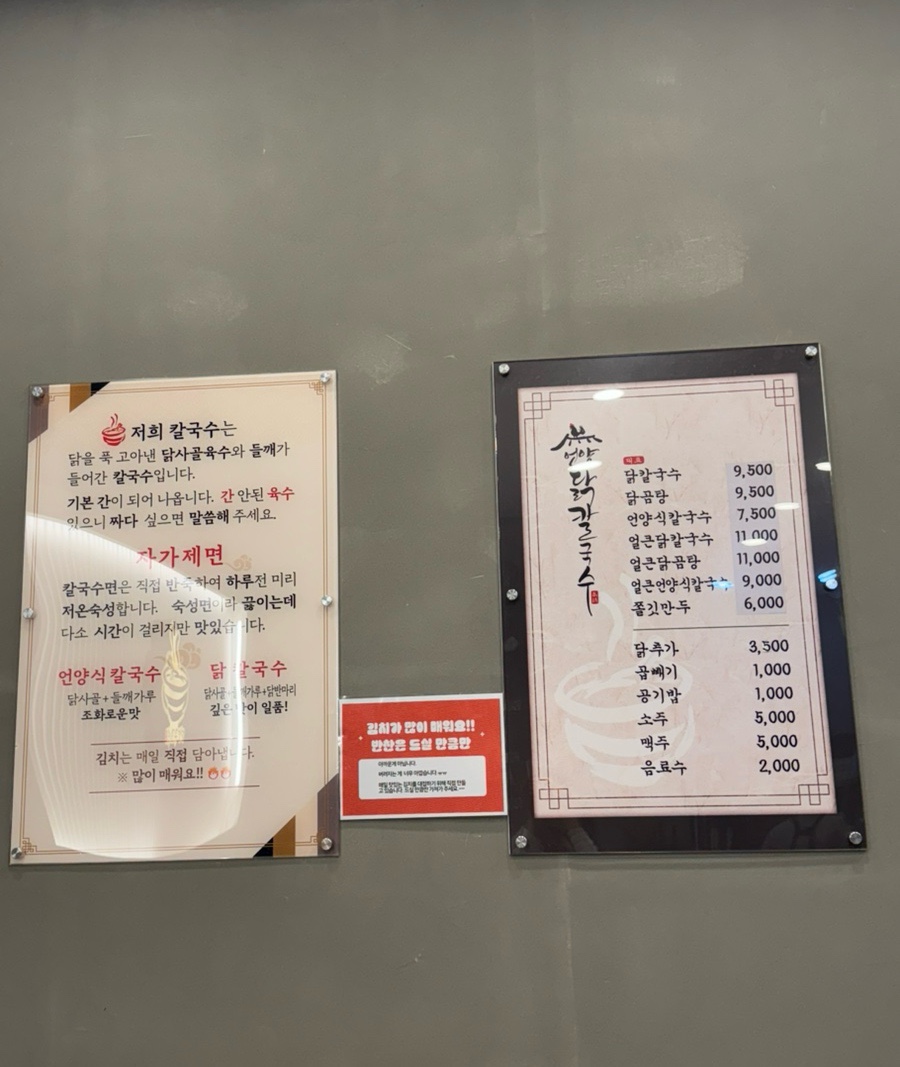 저희 칼국수는
닭을 푹 고아낸 닭사골육수와 들깨가
들어간 칼국수입니다.
기본 간이 되어 나옵니다. 간 안된 육수
있으니 짜다 싶으면 말씀해 주세요.
자가제면
칼국수면은 직접 반죽하여 하루전 미리
저온숙성합니다. 숙성면이라 끓이는데
다소 시간이 걸리지만 맛있습니다.
언양식칼국수
닭사골+들깨가루
조화로운맛
닭칼국수
닭사골+들깨가루+닭반마리
깊은 맛이 일품!
김치는 매일 직접 담아냅니다.
※ 많이 매워요!!
김치가 많이 매워요!!
반찬은 드실 만큼만
아까운게 아닙니다.
버려지는 게 너무 아깝습니다.ㅠㅠ
매일 맛있는 김치를 대접하기 위해 직접 만들
고 있습니다. 드실 만큼만 가져가 주세요.^^
언양닭칼국수
대표
닭칼국수 9,500
닭곰탕 9,500
언양식칼국수 7,500
얼큰닭칼국수 11,000
얼큰닭곰탕 11,000
얼큰언양식칼국수 9,000
쫄깃만두 6,000
닭추가 3,500
곱빼기 1,000
공기밥 1,000
소주 5,000
맥주 5,000
음료수 2,000